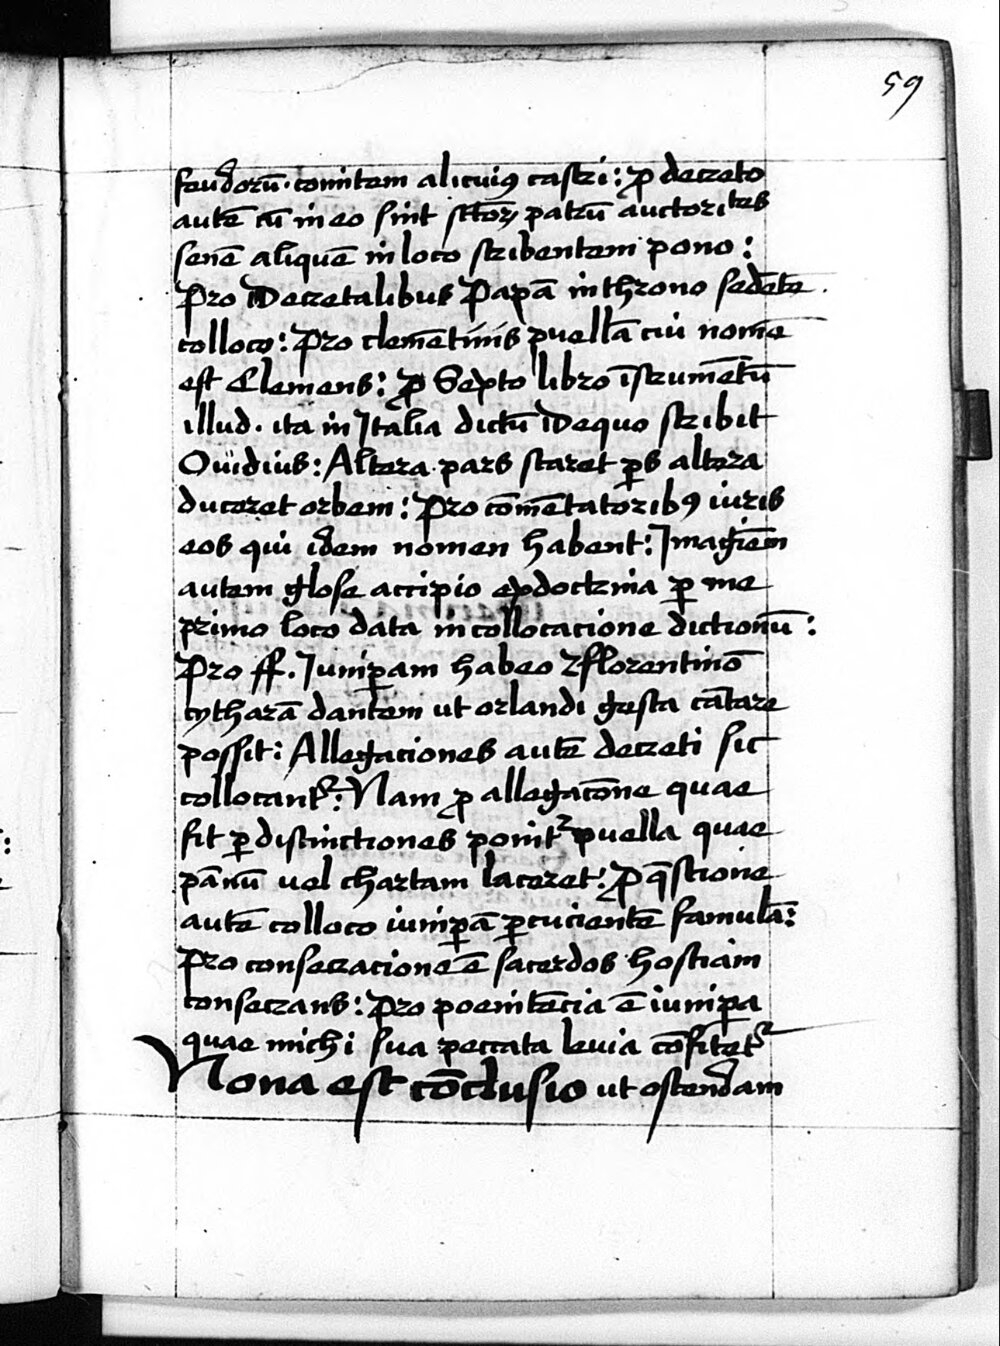 59
feudorū. comitem alicuiꝯ castri: ꝓ decreto
autē cū in eo sint sctōrꝝ patrū auctoritates
senē aliquē in loco scribentem pono:
Pro Decretalibus Papā in throno sedētē.
colloco: Pro clemētinis puellā cui nomē
est Clemens: ꝓ Sexto libro īstrumētū
illud. ita in Italia dictū De quo scribit
Ouidius: Altera pars staret ꝑs altera
duceret orbem: Pro cōmētatoribꝯ iuris
eos qui idem nomen habent: Imagiēm
autem glose accipio ex doctrina ꝑ me
primo loco data in collocacione dictionū:
Pro ff. Iuniꝑam habeo ⁊ florentinō
cytharā dantem ut orlandi gesta cātare
possit: Allegaciones autē decreti sic
collocantᷣ: Nam ꝓ allegacōne quae
fit ꝑ distinctiones ponitᷣ puella quae
pānū uel chartam laceret: ꝓ q̄stione
autē colloco iuniꝑā ꝑcucientē famulā:
Pro consecracione ē sacerdos hostiam
consecrans: Pro poenitēcia ē iuniꝑa
quae michi sua peccata leuia cōfitetᷣ
Nona est cōclusio ut ostendam